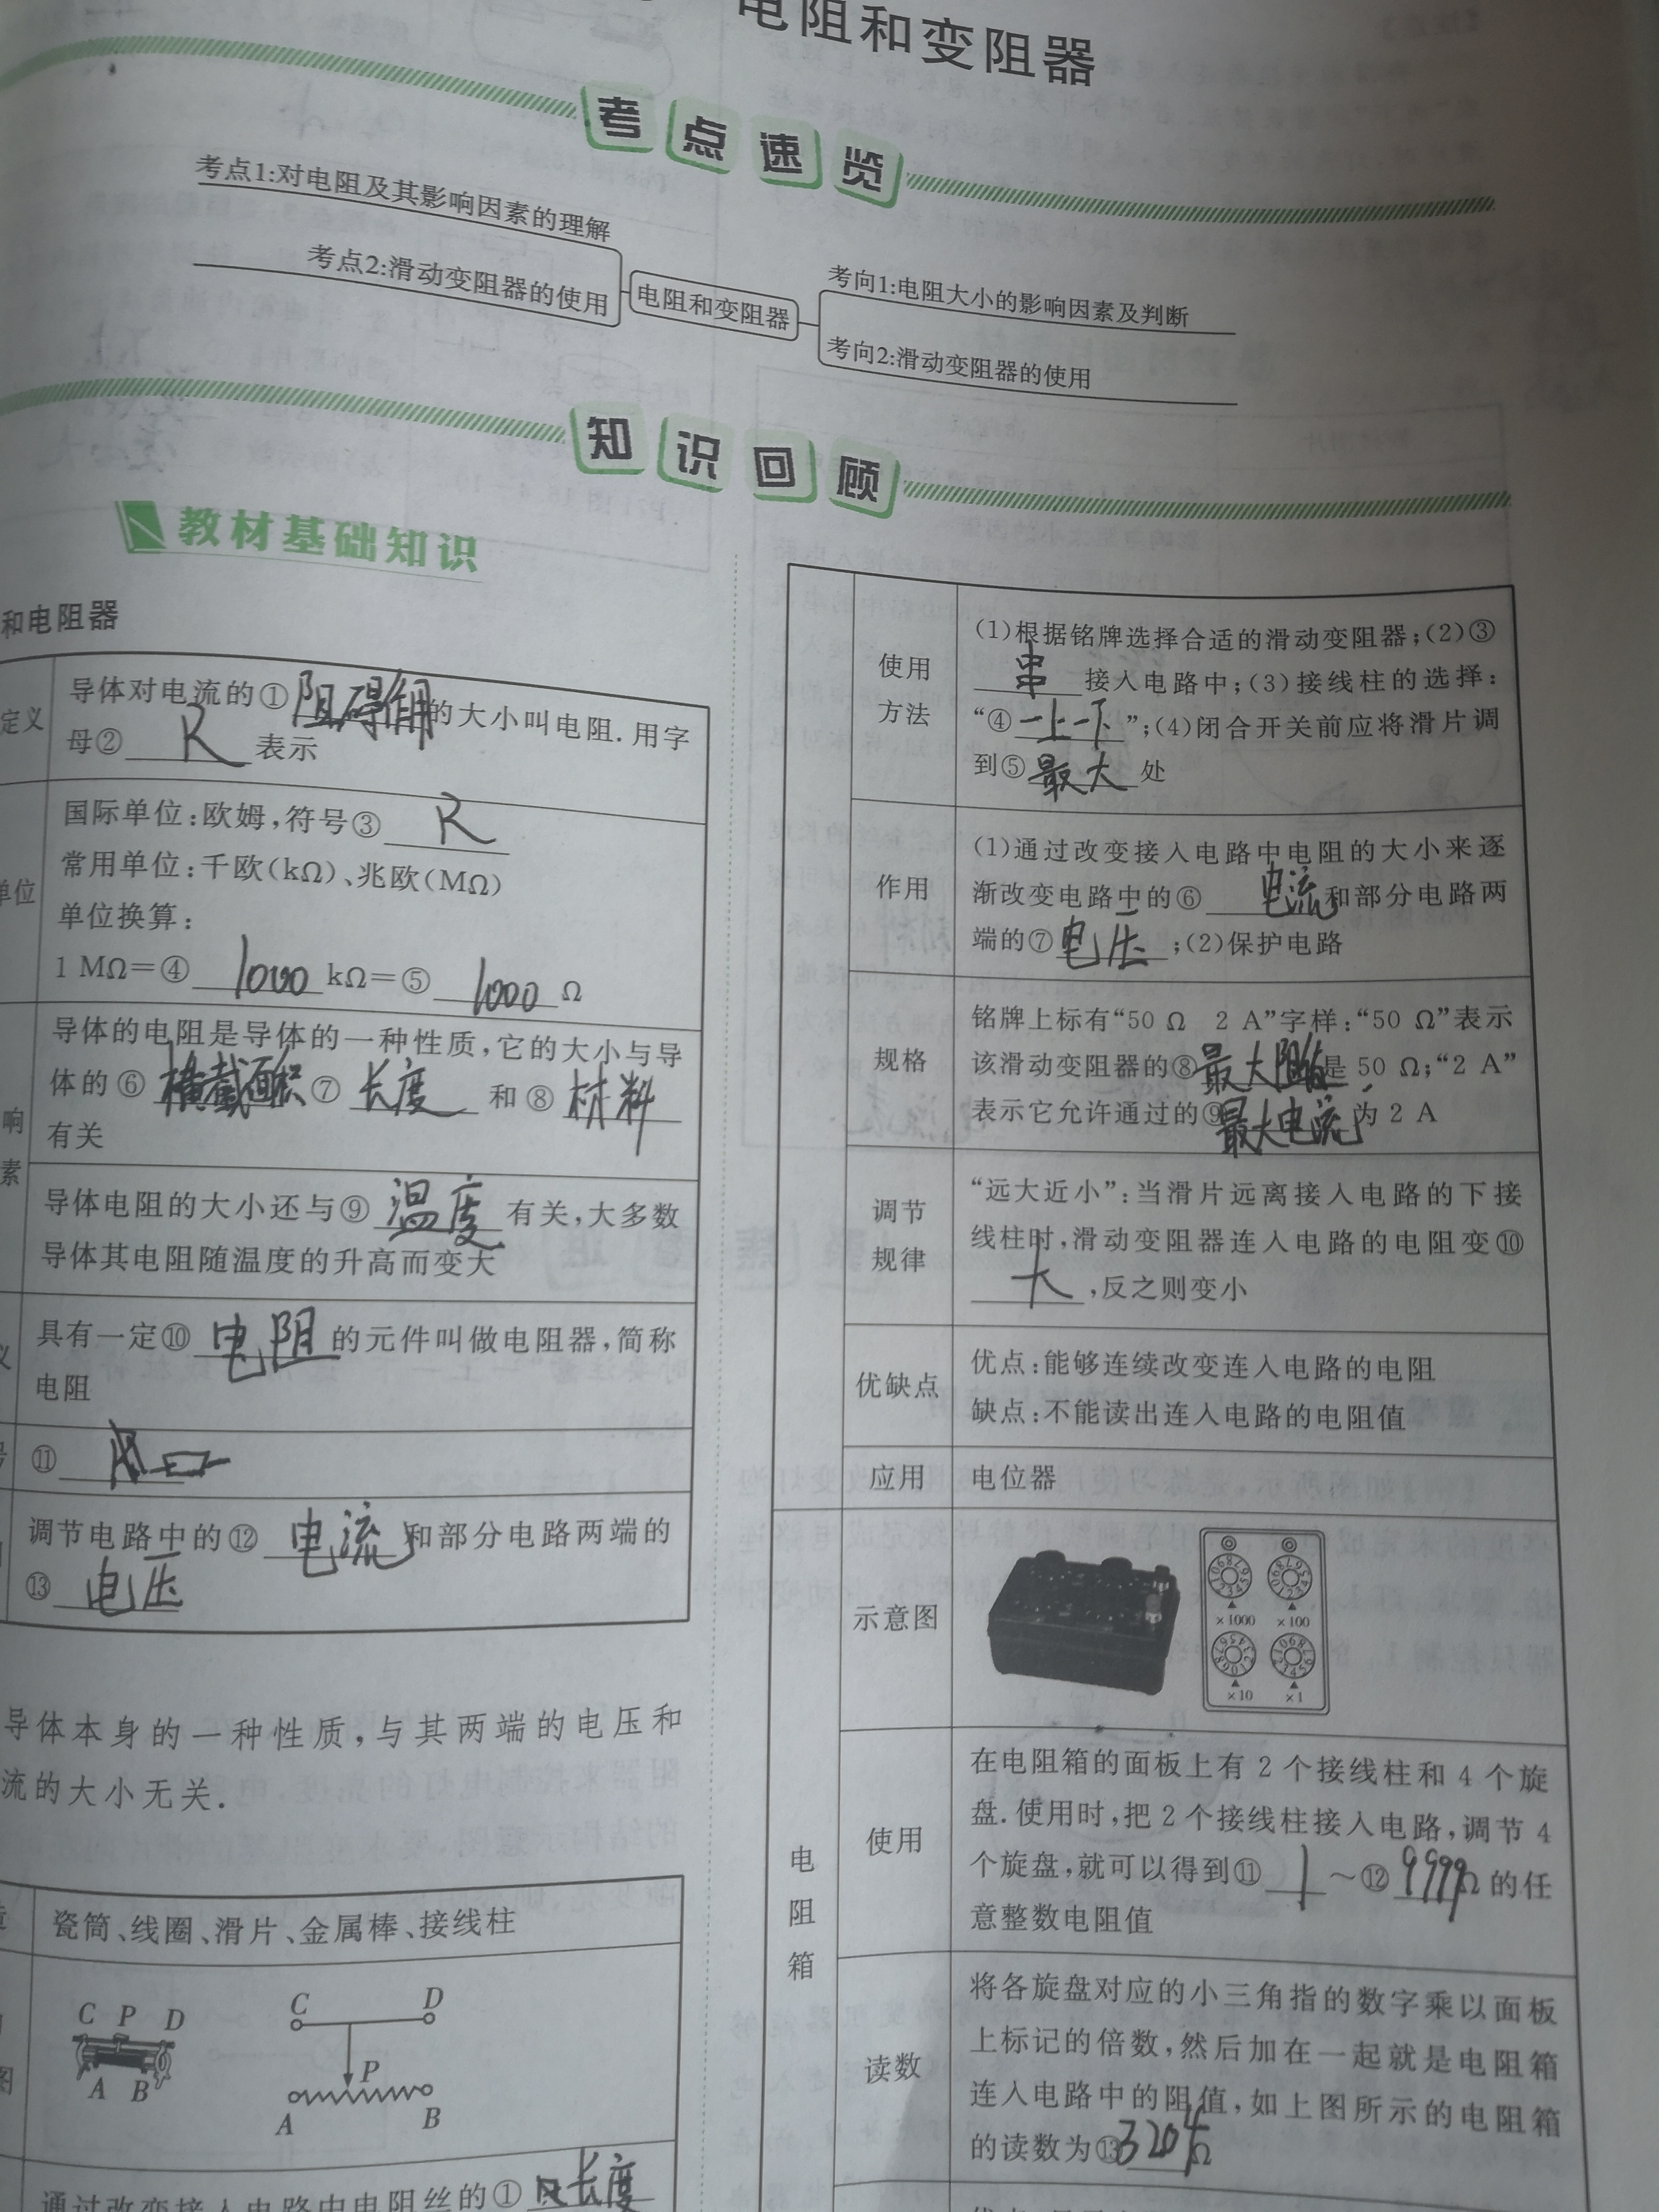 电阻和变阻器
考点速览
考点1:对电阻及其影响因素的理解
考点2:滑动变阻器的使用
电阻和变阻器
考向1:电阻大小的影响因素及判断
考向2:滑动变阻器的使用
知识回顾
教材基础知识
和电阻器
定义
导体对电流的①阻碍作用的大小叫电阻.用字
母②R表示
单位
国际单位:欧姆,符号③R
常用单位:千欧(kΩ)、兆欧(MΩ)
单位换算:
1 MΩ=④1000kΩ=⑤1000Ω
响
素
导体的电阻是导体的一种性质,它的大小与导
体的⑥横截面积⑦长度和⑧材料
有关
导体电阻的大小还与⑨温度有关,大多数
导体其电阻随温度的升高而变大
具有一定⑩电阻的元件叫做电阻器,简称
电阻
⑪
调节电路中的⑫电流和部分电路两端的
⑬电压
导体本身的一种性质,与其两端的电压和
流的大小无关.
瓷筒、线圈、滑片、金属棒、接线柱
图
C P D
A B
C D
P
A B
通过改变接入电路中电阻丝的①长度
使用
方法
(1)根据铭牌选择合适的滑动变阻器;(2)③
串接入电路中;(3)接线柱的选择:
“④一上一下”;(4)闭合开关前应将滑片调
到⑤最大处
作用
(1)通过改变接入电路中电阻的大小来逐
渐改变电路中的⑥电流和部分电路两
端的⑦电压;(2)保护电路
规格
铭牌上标有“50 Ω 2 A”字样:“50 Ω”表示
该滑动变阻器的⑧最大阻值是 50 Ω;“2 A”
表示它允许通过的⑨最大电流为 2 A
调节
规律
“远大近小”:当滑片远离接入电路的下接
线柱时,滑动变阻器连入电路的电阻变⑩
大,反之则变小
优缺点
优点:能够连续改变连入电路的电阻
缺点:不能读出连入电路的电阻值
应用
电位器
电阻箱
示意图
×1000 ×100
×10 ×1
使用
在电阻箱的面板上有 2 个接线柱和 4 个旋
盘.使用时,把 2 个接线柱接入电路,调节 4
个旋盘,就可以得到⑪1～⑫9999Ω的任
意整数电阻值
读数
将各旋盘对应的小三角指的数字乘以面板
上标记的倍数,然后加在一起就是电阻箱
连入电路中的阻值,如上图所示的电阻箱
的读数为⑬3204Ω